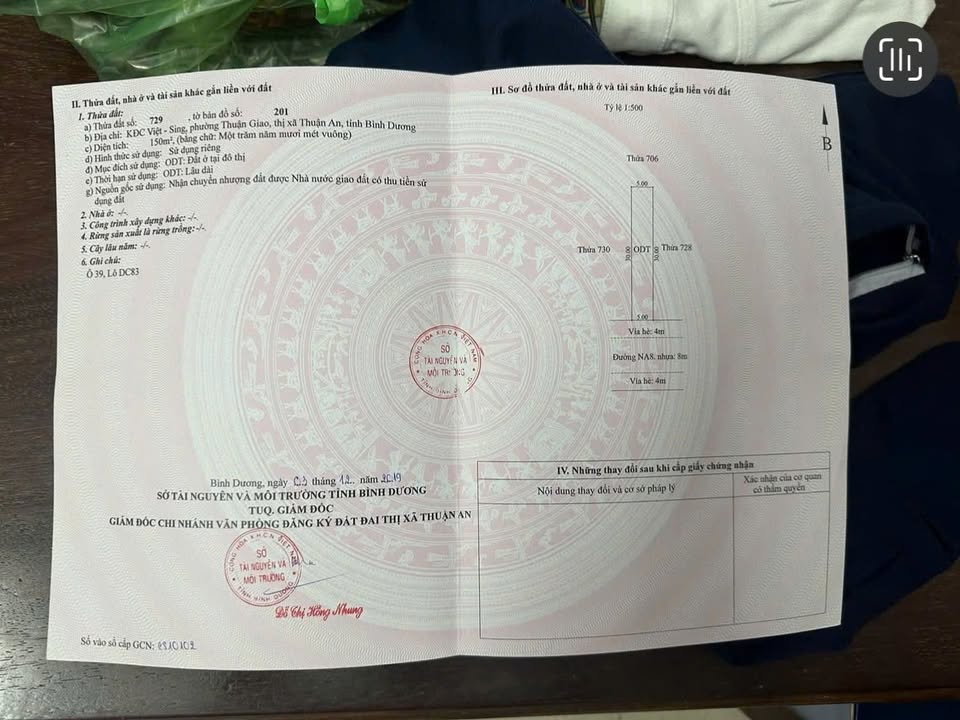 II. Thửa đất, nhà ở và tài sản khác gắn liền với đất
1. Thửa đất:
a) Thửa đất số: 729 , tờ bản đồ số: 201
b) Địa chỉ: KĐC Việt - Sing, phường Thuận Giao, thị xã Thuận An, tỉnh Bình Dương
c) Diện tích: 150m², (bằng chữ: Một trăm năm mươi mét vuông)
d) Hình thức sử dụng: Sử dụng riêng
đ) Mục đích sử dụng: ODT: Đất ở tại đô thị
e) Thời hạn sử dụng: ODT: Lâu dài
g) Nguồn gốc sử dụng: Nhận chuyển nhượng đất được Nhà nước giao đất có thu tiền sử
dụng đất
2. Nhà ở: -/-
3. Công trình xây dựng khác: -/-
4. Rừng sản xuất là rừng trồng: -/-
5. Cây lâu năm: -/-
6. Ghi chú:
Ô 39, Lô DC83
Bình Dương, ngày 03 tháng 12 năm 2019
SỞ TÀI NGUYÊN VÀ MÔI TRƯỜNG TỈNH BÌNH DƯƠNG
TUQ. GIÁM ĐỐC
GIÁM ĐỐC CHI NHÁNH VĂN PHÒNG ĐĂNG KÝ ĐẤT ĐAI THỊ XÃ THUẬN AN
CỘNG HÒA X.H.C.N VIỆT NAM
SỞ
TÀI NGUYÊN VÀ
MÔI TRƯỜNG
TỈNH BÌNH DƯƠNG
Đỗ Thị Hồng Nhung
Số vào sổ cấp GCN:
CỘNG HÒA X.H.C.N VIỆT NAM
SỞ
TÀI NGUYÊN VÀ
MÔI TRƯỜNG
TỈNH BÌNH DƯƠNG
III. Sơ đồ thửa đất, nhà ở và tài sản khác gắn liền với đất
Tỷ lệ 1:500
B
Thửa 706
5.00
Thửa 730 30.00 ODT 30.00 Thửa 728
5.00
Vỉa hè: 4m
Đường NA8. nhựa: 8m
Vỉa hè: 4m
IV. Những thay đổi sau khi cấp giấy chứng nhận
Nội dung thay đổi và cơ sở pháp lý
Xác nhận của cơ quan
có thẩm quyền